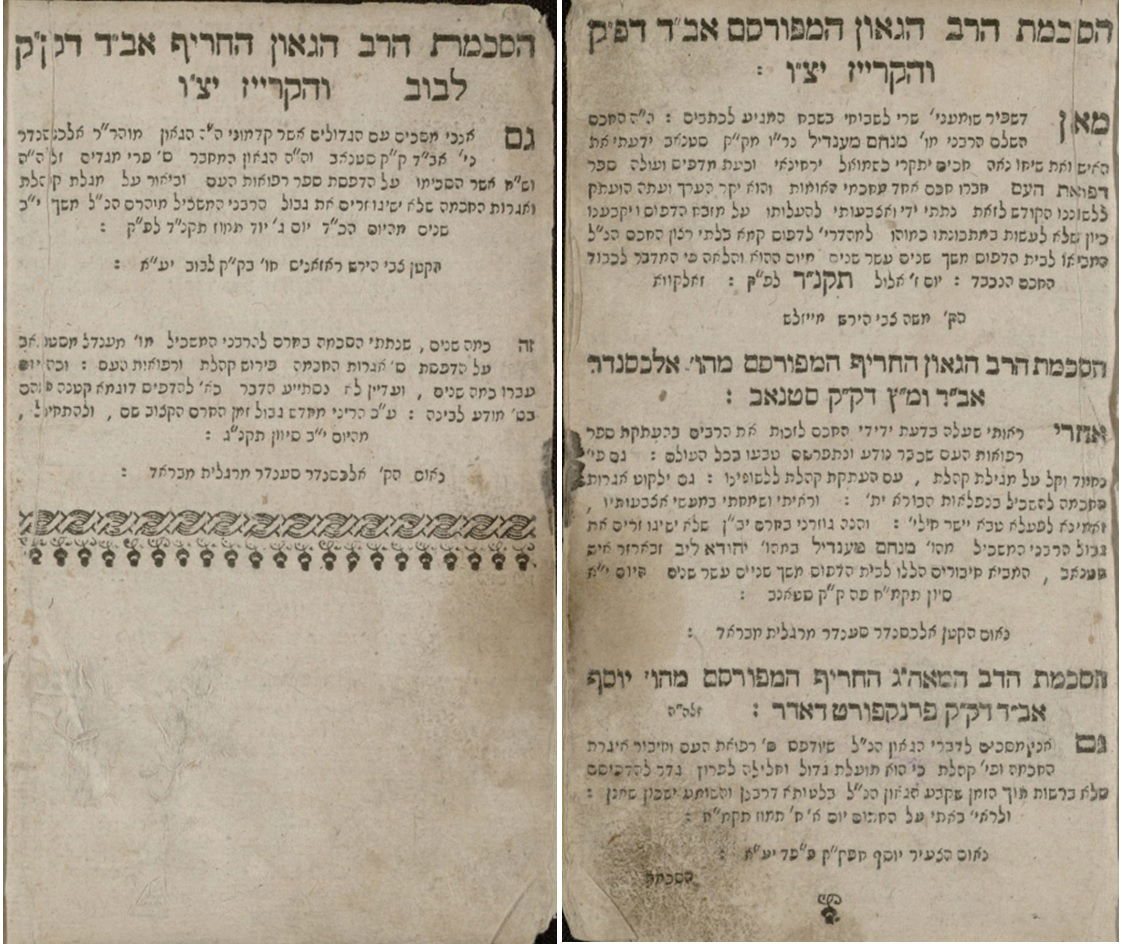 הסכמת הרב הגאון המפורסם אב״ד דפ״ק
והקרייז יצ״ו :
מאן דשפיר שומעני׳ שרי לשבוחי בשבח המגיע לכתבים : ה״ה החכם
השלם הרבני מו׳ מנחם מענדיל נר״ו מק״ק סטנאב ידעתי את
האיש ואת שיחו נאה חכים יתקרי כשמואל ירחינאי וכעת מדפיס ועולה ספר
רפואת העם חברו חכם אחד מחכמי האומות והוא יקר הערך ועתה הועתק
ללשוננו הקודש לזאת נתתי ידי ואצבעותי להעלותו על מזבח הדפוס ויקבענו
כיון שלא לעשות במתכונתו כמוהו למהדרי׳ לדפוס קמא בלתי רצון החכם הנ״ל
המביאו לבית הדפוס משך שנים עשר שנים מיום ההוא והלאה פי המדבר לכבוד
החכם הנכבד : יום ז׳ אלול תקנ״ד לפ״ק : זאלקווא
הק׳ משה צבי הירש מייזלש
הסכמת הרב הגאון החריף המפורסם מהו׳ אלכסנדר
אב״ד ומ״ץ דק״ק סטנאב :
אחרי ראותי שעלה בדעת ידידי החכם לזכות את הרבים בהעתקת ספר
רפואות העם שכבר נודע ונתפרסם טבעו בכל העולם : גם פי׳
נחמד וקל על מגילת קהלת , עם העתקת קהלת ללשונינו : גם ילקוט אגרות
החכמה להשכיל בנפלאות הבורא ית׳ : וראיתי ושמחתי במעשי אצבעותיו ,
ואמינא לפעלא טבא יישר חילי׳ : והנה גוזרני בחרם יב״ן שלא ישיגו זרים את
גבול הרבני המשכיל מהו׳ מנחם מענדיל במהו׳ יהודא ליב זבארזר איש
סטנאב , המביא חיבורים הללו לבית הדפוס משך שניים עשר שנים היום י״א
סיון תקמ״ח פה ק״ק סטאנב :
נאום הקטן אלכסנדר סענדר מרגלית מבראד :
הסכמת הרב המאה״ג החריף המפורסם מהו׳ יוסף
אב״ד דק״ק פרנקפורט דאדר : זלה״ה
גם אנכי מסכים לדברי הגאון הנ״ל שיודפס ס׳ רפואת העם וחיבור איגרת
החכמה ופי׳ קהלת כי הוא תועלת גדול וחלילה לפרוץ גדר להדפיסם
שלא ברשות תוך הזמן שקבע הגאון הנ״ל בלטותא דרבנן והשומע ישכון שאנן :
ולראי׳ באתי על החתום יום א׳ ח׳ תמוז תקמ״ח :
נאום הצעיר יוסף חפק״ק פ״פד יע״א :
הסכמת
הסכמת הרב הגאון החריף אב״ד דק״ק
לבוב והקרייז יצ״ו
גם אנכי מסכים עם הגדולים אשר קדמוני ה״ה הגאון מוהר״ר אלכסנדר
כי׳ אב״ד ק״ק סטנאב וה״ה הגאון המחבר ס׳ פרי מגדים זלה״ה
וש״ח אשר הסכימו על הדפסת ספר רפואות העם וביאור על מגלת קהלת
ואגרות החכמה שלא ישיגו זרים את גבול הרבני המשכיל מוהרם הנ״ל משך י״ב
שנים מהיום הכ״ד יום ג׳ יוד תמוז תקנ״ד לפ״ק :
הקטן צבי הירש ראזאניס חו׳ בק״ק לבוב יע״א :
זה כמה שנים , שנתתי הסכמה בחרם להרבני המשכיל מו׳ מענדל מסטנאב
על הדפסת ס׳ אגרות החכמה פירוש קהלת ורפואות העם : וכהיום
עברו כמה שנים , ועדיין לא נסתייע הדבר כא׳ להדפיס דוגמא קטנה מהם
בס׳ מודע לבינה : ע״כ הריני מחדש גבול זמן החרם הקצוב שם , ולהתחיל ,
מהיום י״ב סיוון תקנ״ג :
נאום הק׳ אלכסנדר סענדר מרגלית מבראד :